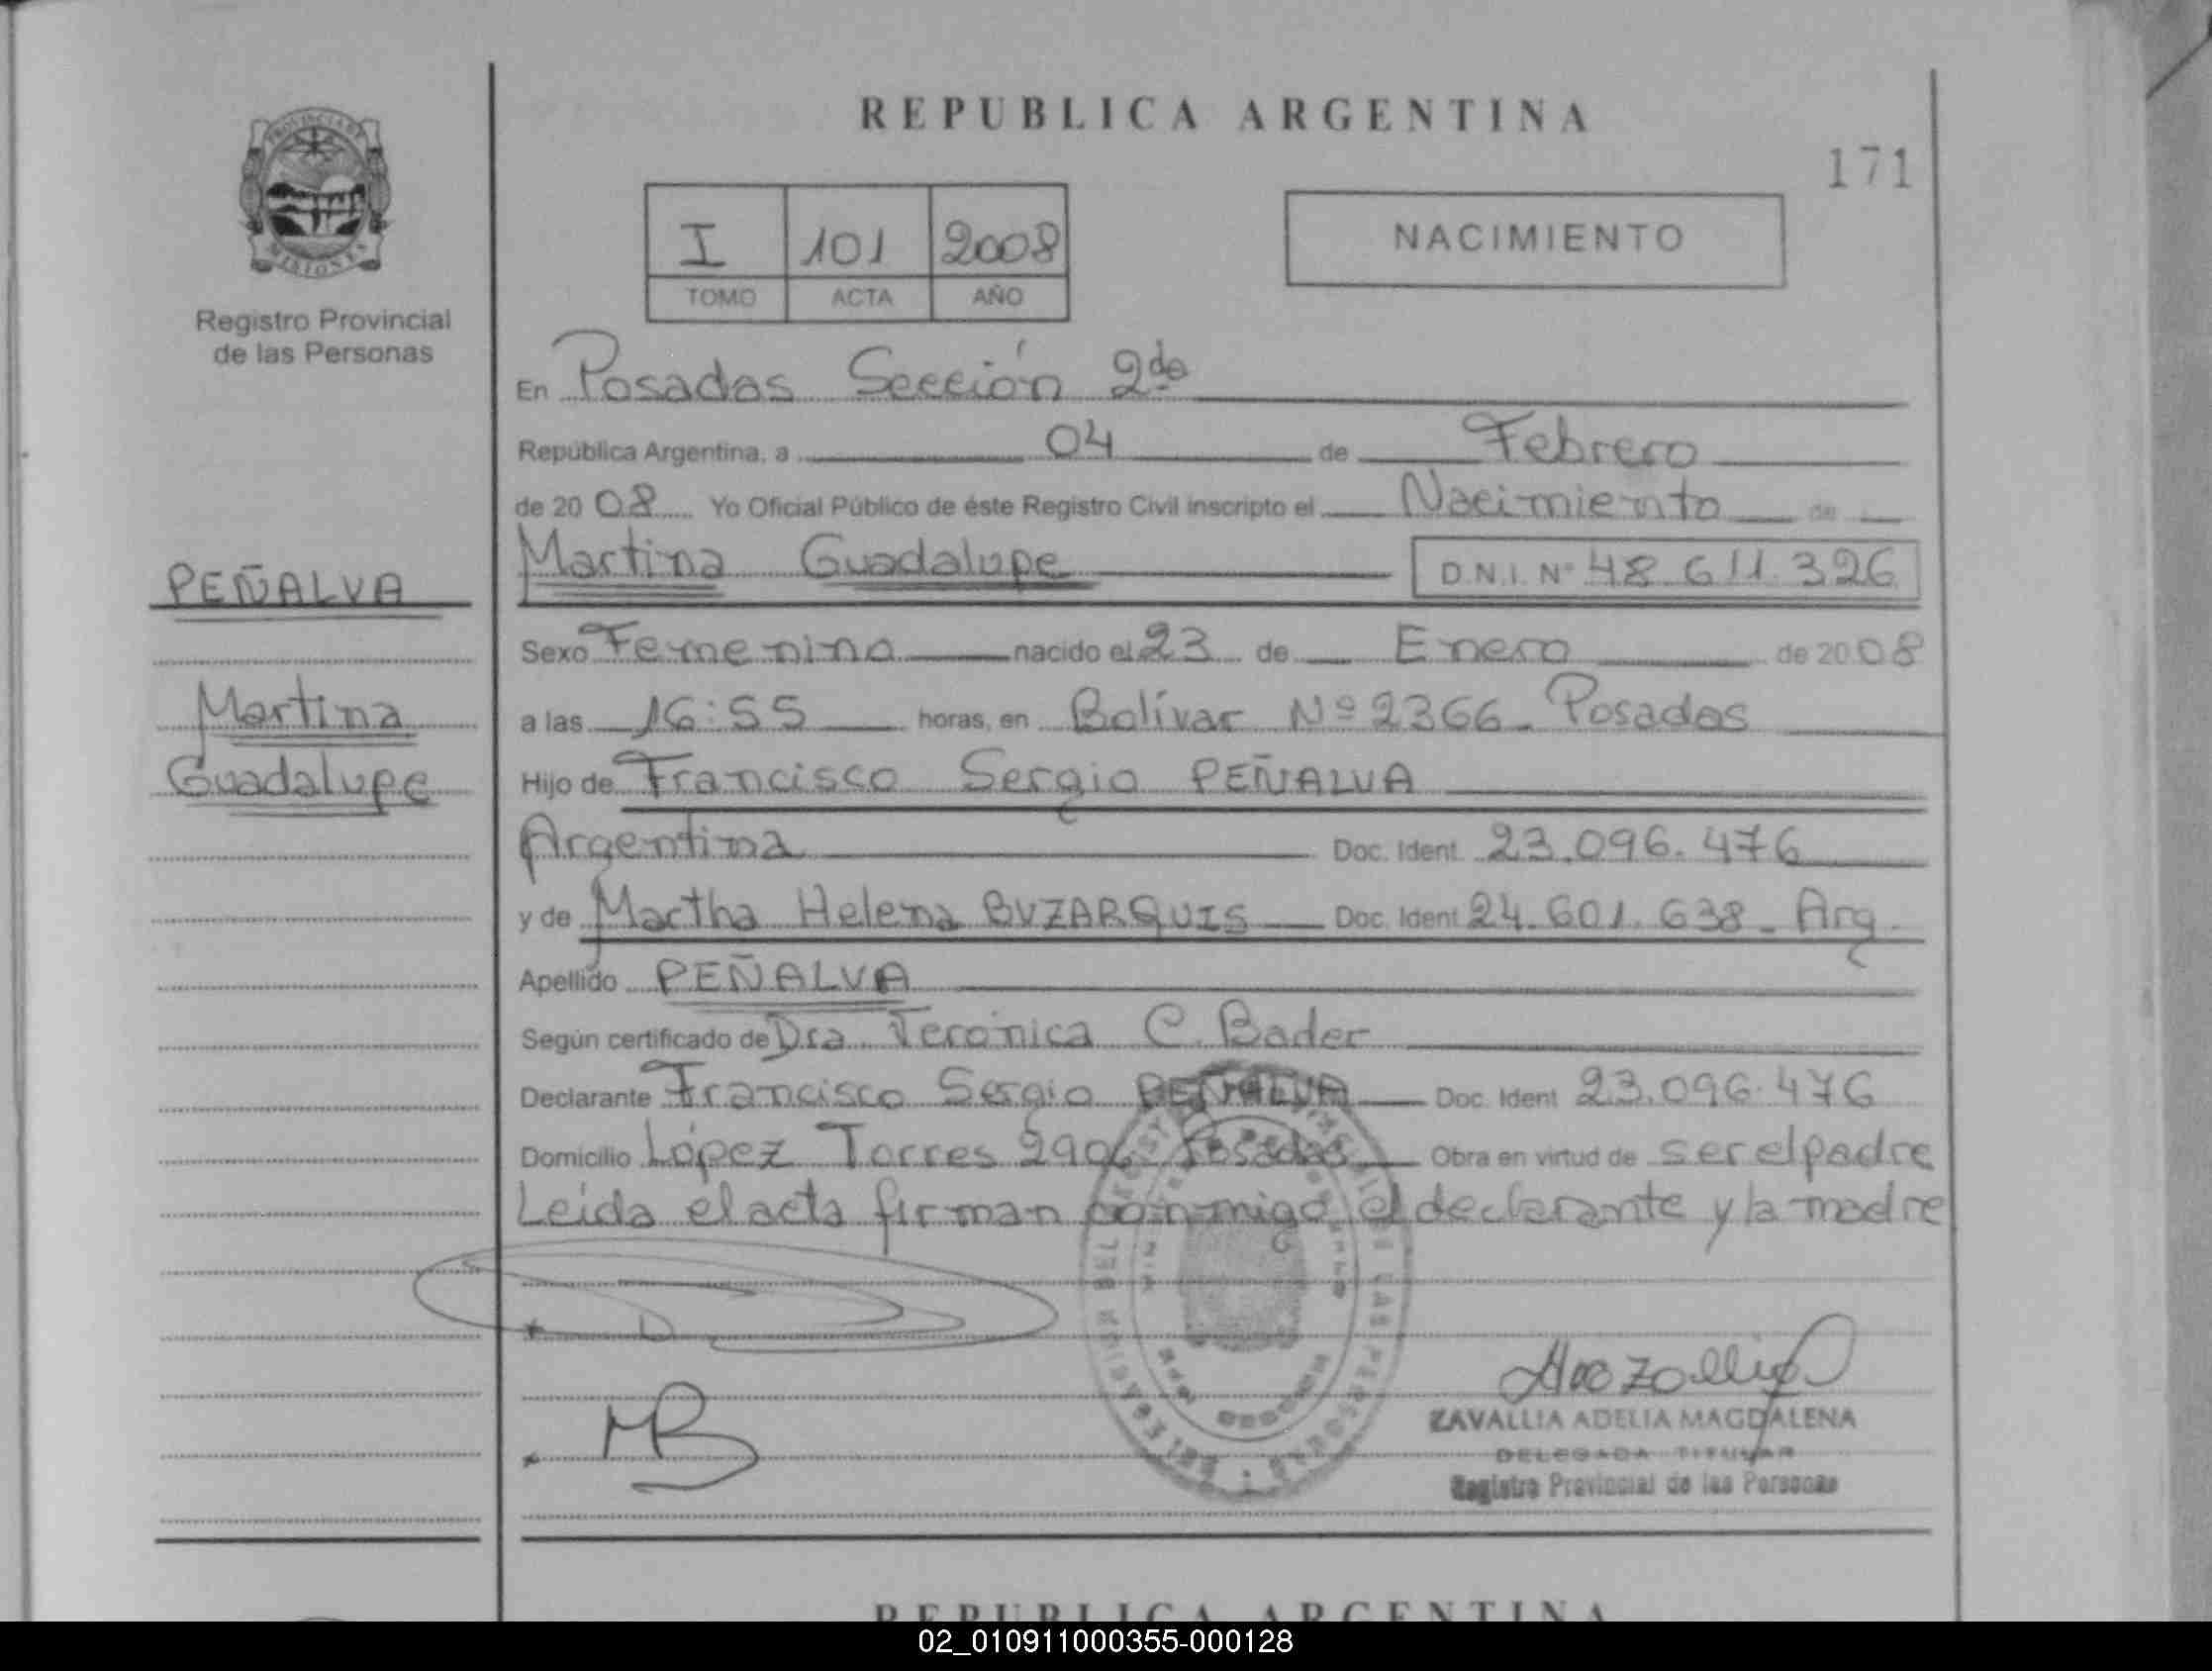 REPUBLICA ARGENTINA
171
PROVINCIA DE
MISIONES
Registro Provincial
de las Personas
I 101 2008
TOMO ACTA AÑO
NACIMIENTO
En Posadas Sección 2da
República Argentina, a 04 de Febrero
de 2008 Yo Oficial Público de éste Registro Civil inscripto el Nacimiento de
Martina Guadalupe D.N.I. Nº 48.611.326
PEÑALVA
Martina
Guadalupe
Sexo Femenino nacido el 23 de Enero de 2008
a las 16:55 horas, en Bolívar Nº 2366 - Posadas
Hijo de Francisco Sergio PEÑALVA
Argentina Doc. Ident. 23.096.476
y de Martha Helena BUZARQUIS Doc. Ident 24.601.638 - Arg.
Apellido PEÑALVA
Según certificado de Dra. Verónica C. Bader
Declarante Francisco Sergio PEÑALVA Doc. Ident 23.096.476
Domicilio López Torres 2906 Posadas Obra en virtud de ser el padre
Leída el acta firman conmigo el declarante y la madre
MB
ZAVALLIA ADELIA MAGDALENA
DELEGADA TITULAR
Registro Provincial de las Personas
REPUBLICA ARGENTINA
02_010911000355-000128